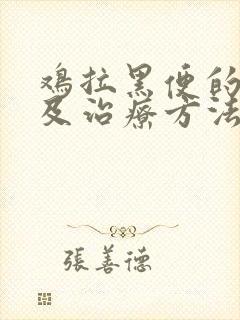 鸡拉黑便的
及治療方法
張善德